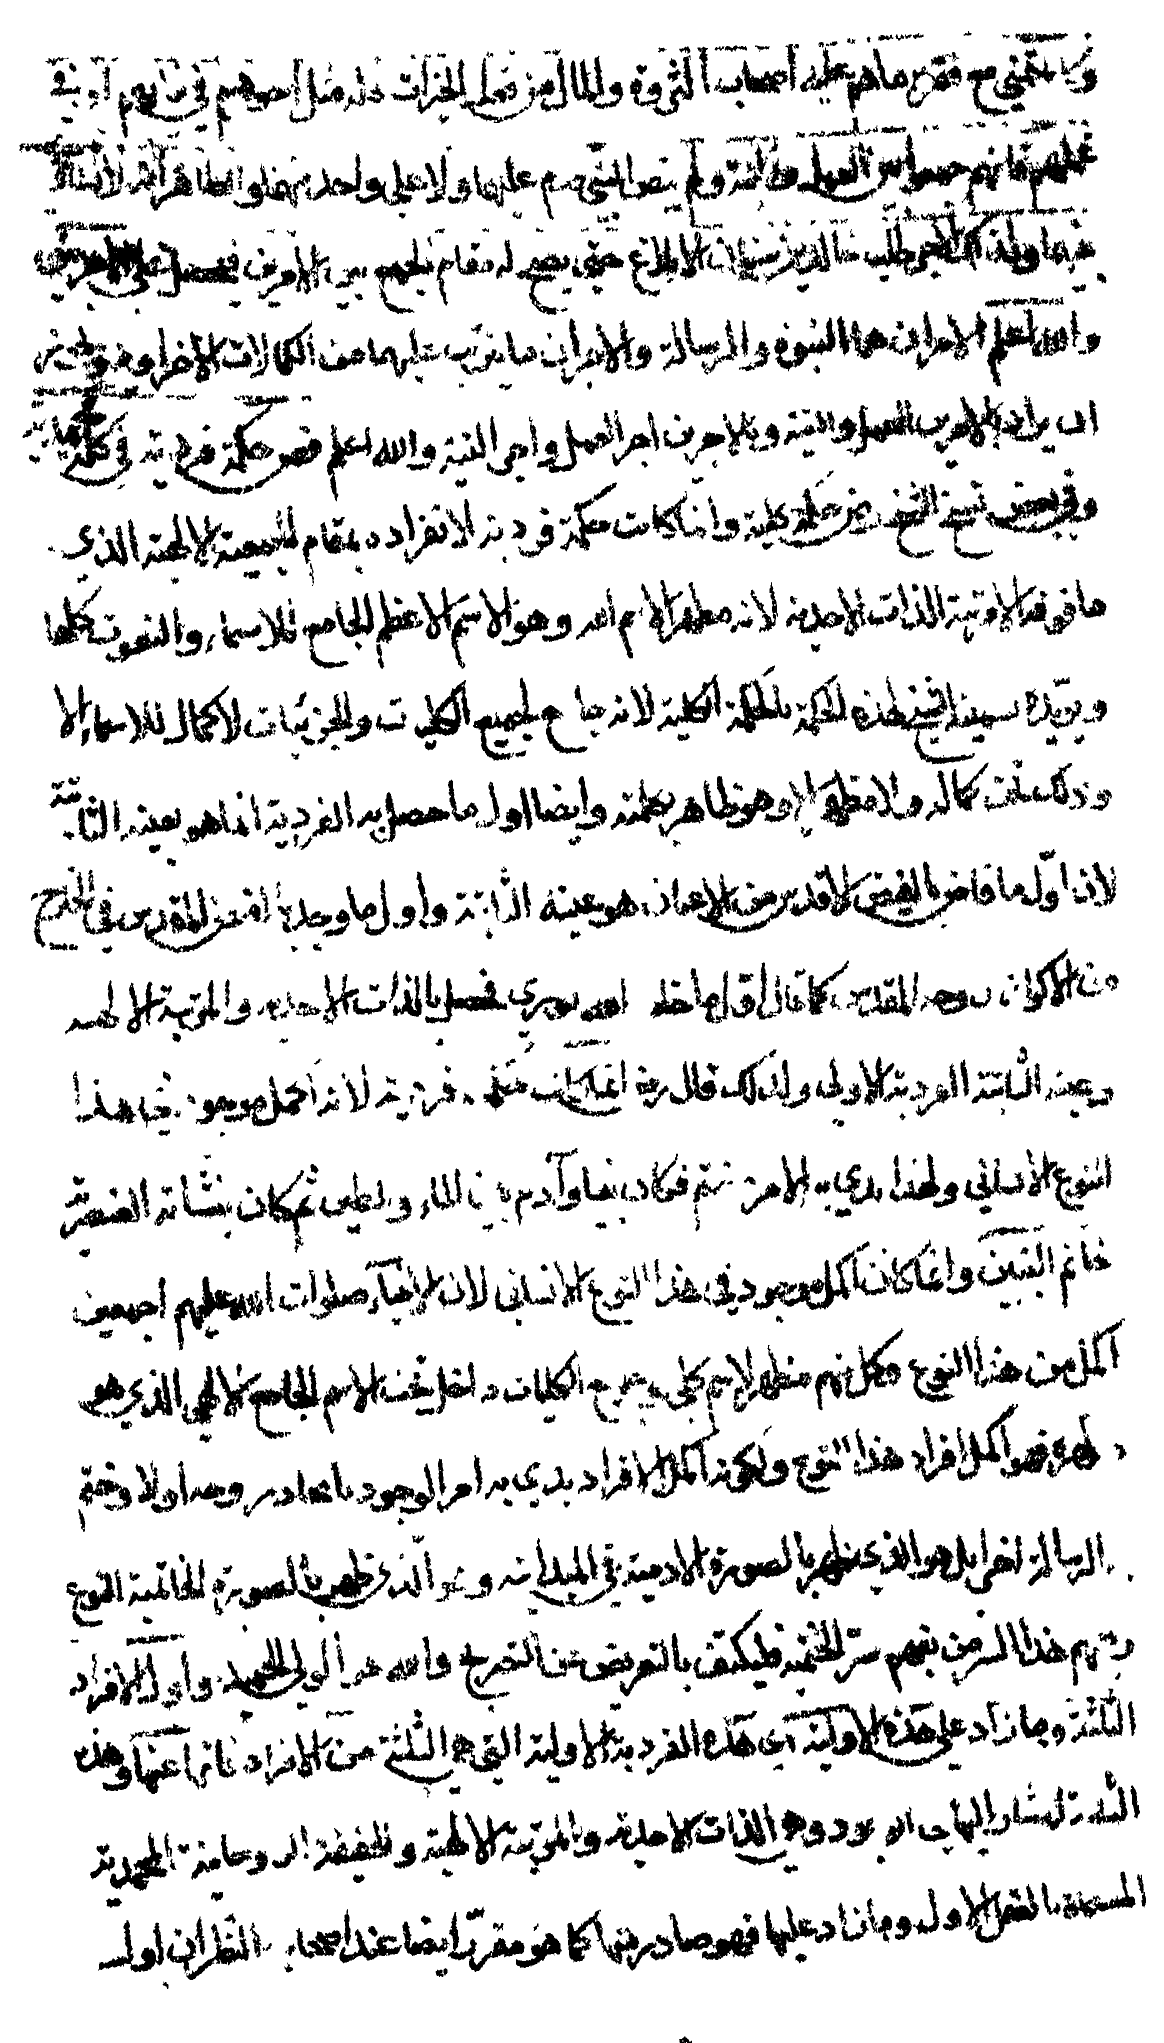 وكالمتمني مع فقره ما هم عليه أصحاب الثروة والمال من فعل الخيرات فله مثل أجورهم في نياتهم أو في
عملهم فإنهم جمعوا بين العمل والنية ولم ينص النبي صم عليهما ولا على واحد منهما والظاهر أنه لا تساوي
بينهما ولذلك طلب خالد بن سنان الابلاغ حتى يصح له مقام الجمع بين الامرين فيحصل على الاجرين
والله اعلم الامران هما النبوة والرسالة والاجران ما يترتب عليهما من الكمالات الاخراوية
ان يراد بالامرين العمل والنية وبالاجرين اجر العمل واجر النية والله اعلم فص حكمة فردية في كلمة
وفي بعض نسخ الشيخ رض حكمة كلية وانما كانت حكمة فردية لانفراده بمقام الجمعية الالهية الذي
ما فوقه الا مرتبة الذات الاحدية لانه مظهر الاسم الله وهو الاسم الاعظم الجامع للاسماء والنعوت كلها
ويؤيده تسمية الشيخ لهذه الحكمة بالحكمة الكلية لانه جامع لجميع الكليات والجزئيات لا كمال للاسماء الا
وذلك تحت كماله ولا مظهر الا وهو ظاهر بكلمته وايضا اول ما حصل به الفردية انما هو بعينه الثابتة
لان اول ما فاض بالفيض الاقدس من الاعيان هو عينه الثابتة واول ما وجد بالفيض المقدس في الخارج
من الاكوان روحه المقدس كما قال اول ما خلق الله نوري فحصل بالذات الاحدية والمرتبة الالهية
وعينه الثابتة الفردية الاولى ولذلك قال رض انما كانت حكمته فردية لانه اكمل موجود في هذا
النوع الانساني ولهذا بدي به الامر وختم فكان نبيا وآدم بين الماء والطين ثم كان بنشاته العنصرية
خاتم النبيين وانما كان اكمل موجود في هذا النوع الانساني لان الانبياء صلوات الله عليهم اجمعين
اكمل من هذا النوع وكل منهم مظهر لاسم كلي وجميع الكليات داخل تحت الاسم الجامع الالهي الذي هو
مظهره فهو اكمل افراد هذا النوع ولكونه اكمل الافراد بدي به امر الوجود بايجاد روحه اولا وختم
الرسالة اخرا بل هو الذي ظهر بالصورة الادمية في المبدائية وهو الذي ظهر بالصورة الخاتمية للنوع
ويفهم هذا السر من يفهم سر الختمية فليكتف بالتعريض عن التصريح والله هو الولي الحميد واول الافراد
الثلثة وما زاد على هذه الاولية اي هذه الفردية الاولية التي هي الثلثة من الافراد فانها عنها وهذه
الثلاثة المشار اليها في الوجود وهي الذات الاحدية والمرتبة الالهية والحقيقة الروحانية المحمدية
المسماة بالعقل الاول وما زاد عليها فهو صادر منها كما هو مقرر ايضا عند اصحاب النظر ان اول